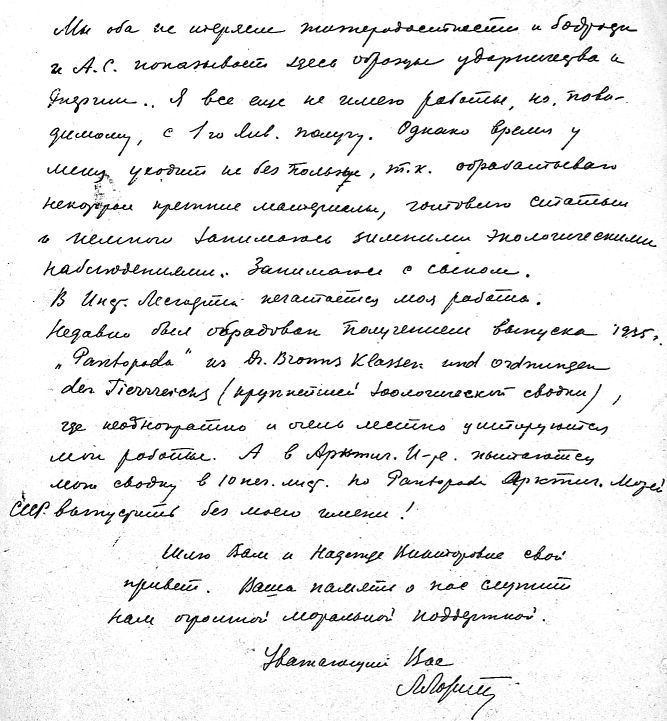 Мы оба не теряем жизнерадостности и бодрости
и А.С. показывает здесь образцы ударничества и
энергии.. Я все еще не имею работы, но, пови-
димому, с 1го Янв. получу. Однако время у
меня уходит не без пользы, т.к. обрабатываю
некоторые прежние материалы, готовлю статьи
и немного занимаюсь зимними экологическими
наблюдениями. Занимаюсь с сыном.
В Инст. Лесгафта печатается моя работа.
Недавно был обрадован получением выпуска 1935 г.
"Pantopoda" из Dr. Bronns Klassen und Ordnungen
des Tierreichs (крупнейшей зоологической сводки),
где неоднократно и очень лестно цитируются
мои работы. А в Арктич. И-те пытаются
мою сводку в 10 печ. лист. по Pantopoda Арктич. Морей
СССР. выпустить без моего имени!
Шлю Вам и Надежде Викторовне свой
привет. Ваша память о нас служит
нам огромной моральной поддержкой.
Уважающий Вас